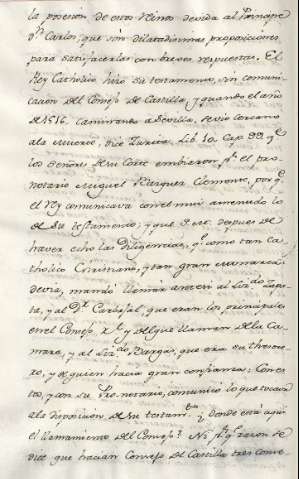 la posesion de estos Reinos devida al Principe
Dn Carlos, que sin dilatadissimas proposiciones
para satisfacerlas con breves respuestas. El
Rey Catholico hizo su testamento, sin comuni-
cacion del Consejo de Castilla, y quando el año
de 1516. Caminando a Sevilla, se vio cercano
a la muerte, dice Zurita, Lib. 10. Cap. 99. qe
los señores de su Corte embiaron pr el pro-
notario Miguel Velazquez Clemente, por qe
el Rey comunicava con el mui amenudo lo
de su Testamento, y que este, despues de
haver echo las diligencias, qe como tan Ca-
tholico Christiano, y tan gran Monarca
devia, mandò llamar a el Lizdo Zapa-
ta, y al Dr Carbajal, que eran los principales
en el Consejo Rl y del que llaman de la Ca-
mara, y al Lizdo Vargas, que era su thesore-
ro, y de quien hacia gran confianza: Con es-
tos, y con su Pronotario, comunicò lo que tocava
a la disposicion de su testamto donde està aqui
el llamamiento del Consejo? Ni qe razon se
dice que hacian Consejo de Castilla tres Conse-